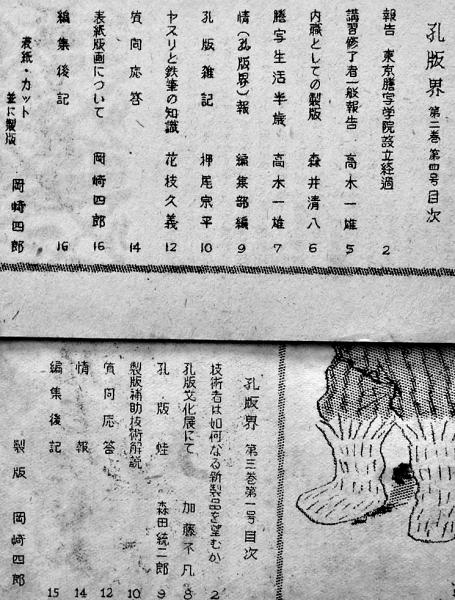 孔版界 第二巻第四号目次
報告 東京謄写学院設立経過 2
講習修了者一般報告 高木一雄 5
内職としての製版 森井清八 6
謄写生活半歳 高木一雄 7
情(孔版界)報 編集部編 9
孔版雑記 押尾宗平 10
ヤスリと鉄筆の知識 花枝久義 12
質向応答 14
表紙版画について 岡崎四郎 16
編集後記 16
表紙・カット 並に製版 岡崎四郎
孔版界 第三巻第一号目次
技術者は如何なる新製品を望むか 2
孔版文化展にて 加藤不凡 8
孔版蛙 森田統二郎 9
製版補助技術解説 10
質向応答 12
情報 14
編集後記 15
製版 岡崎四郎